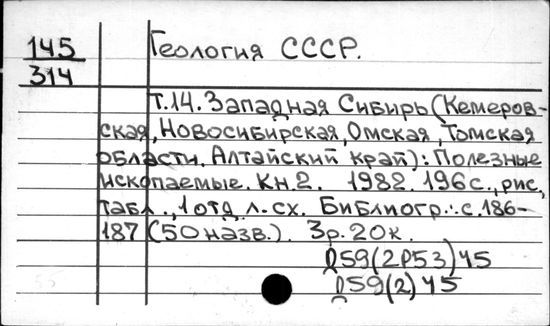 145
314
Геология СССР.
Т.14. Западная Сибирь (Кемеров-
ская, Новосибирская, Омская, Томская
области, Алтайский край): Полезные
ископаемые. Кн.2. 1982. 196с., рис,
табл., 1 отд. л.сх. Библиогр.: с.186-
187 (50 назв.). 3р.20к.
Д59(2Р53)45
Д59(2)45